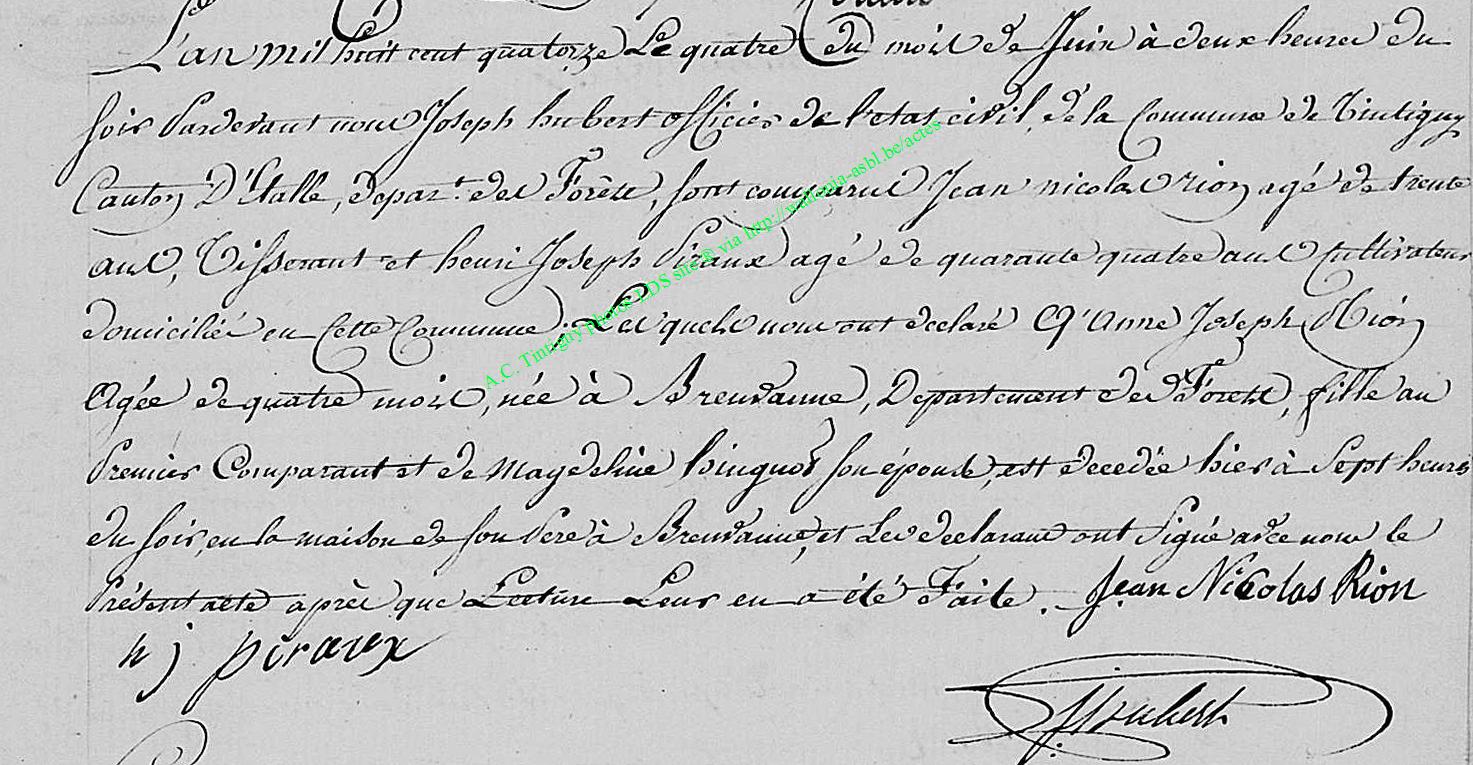 L'an mil huit cent quatorze Le quatre du mois de Juin à deux heures du
soir Pardevant nous Joseph hubert officier de l'etat civil, de la Commune de Tintigny
Canton D'Etalle, depar.t des Forêts, sont comparus Jean nicolas rion agé de trente
ans, Tisserant et henri Joseph Piraux agé de quarante quatre ans Cultivateur
domiciliés en Cette Commune; Les quels nous ont declaré Q'Anne Joseph Rion
Agée de quatre mois, née à Breuvanne, Departement des Forets, fille au
Premier Comparant et de Magdeleine hinguot son épouse, est decedée hier à Sept heures
du soir, en la maison de son Pere à Breuvanne, et Les declarans ont Signé avec nous le
Présent acte après que Lecture Leur en a été Faite. Jean Nicolas Rion
h j piraux
JHubert
A.C. Tintigny photos LDS site © via http://wallonia-asbl.be/actes